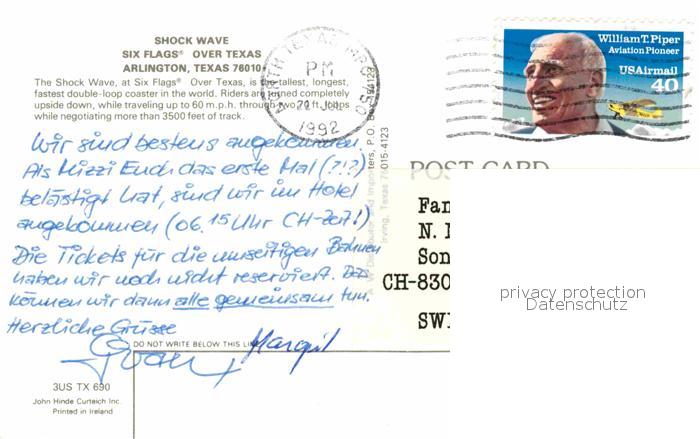 SHOCK WAVE
SIX FLAGS® OVER TEXAS
ARLINGTON, TEXAS 76010
The Shock Wave, at Six Flags® Over Texas, is the tallest, longest,
fastest double-loop coaster in the world. Riders are turned completely
upside down, while traveling up to 60 m.p.h. through two 70 ft. loops
while negotiating more than 3500 feet of track.
NORTH TEXAS
PM
JUL
1992
William T. Piper
Aviation Pioneer
USAirmail
40
Wir sind bestens angekommen.
Als Mizzi Euch das erste Mal (?!?)
belästigt hat, sind wir im Hotel
angekommen (06.15 Uhr CH-Zeit!)
Die Tickets für die umseitigen Bahnen
haben wir noch nicht reserviert. Das
können wir dann alle gemeinsam tun.
Herzliche Grüsse
Margrit
POST CARD
Fam
N.
Son
CH-830
SWI
privacy protection
Datenschutz
DO NOT WRITE BELOW THIS LINE
Irving, Texas 76015-4123
3US TX 690
John Hinde Curteich Inc.
Printed in Ireland